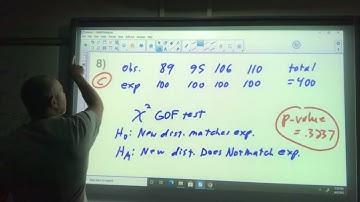 8)
C
obs. 89 95 106 110 total
exp 100 100 100 100 = 400
χ² GOF test
H₀: New dist. matches exp.
Hₐ: New dist. Does Not match exp.
p-value
= .3737